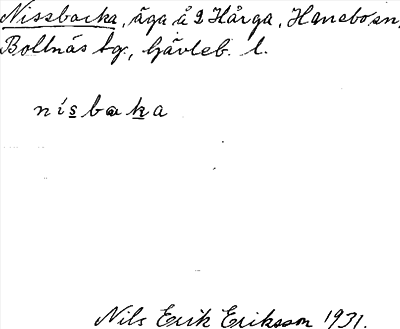 Nissbacka, äga å 2 Hårga, Hanebo sn,
Bollnäs tg., Gävleb. l.
nísbaka
Nils Erik Eriksson 1931.